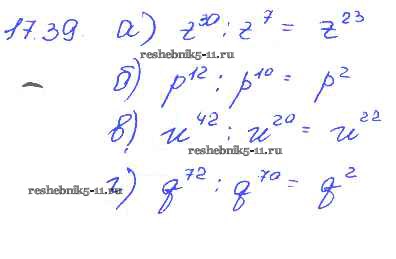 17.39. а) z³⁰ : z⁷ = z²³
reshebnik5-11.ru
б) p¹² : p¹⁰ = p²
в) u⁴² : u²⁰ = u²²
reshebnik5-11.ru
reshebnik5-11.ru
г) q⁷² : q⁷⁰ = q²